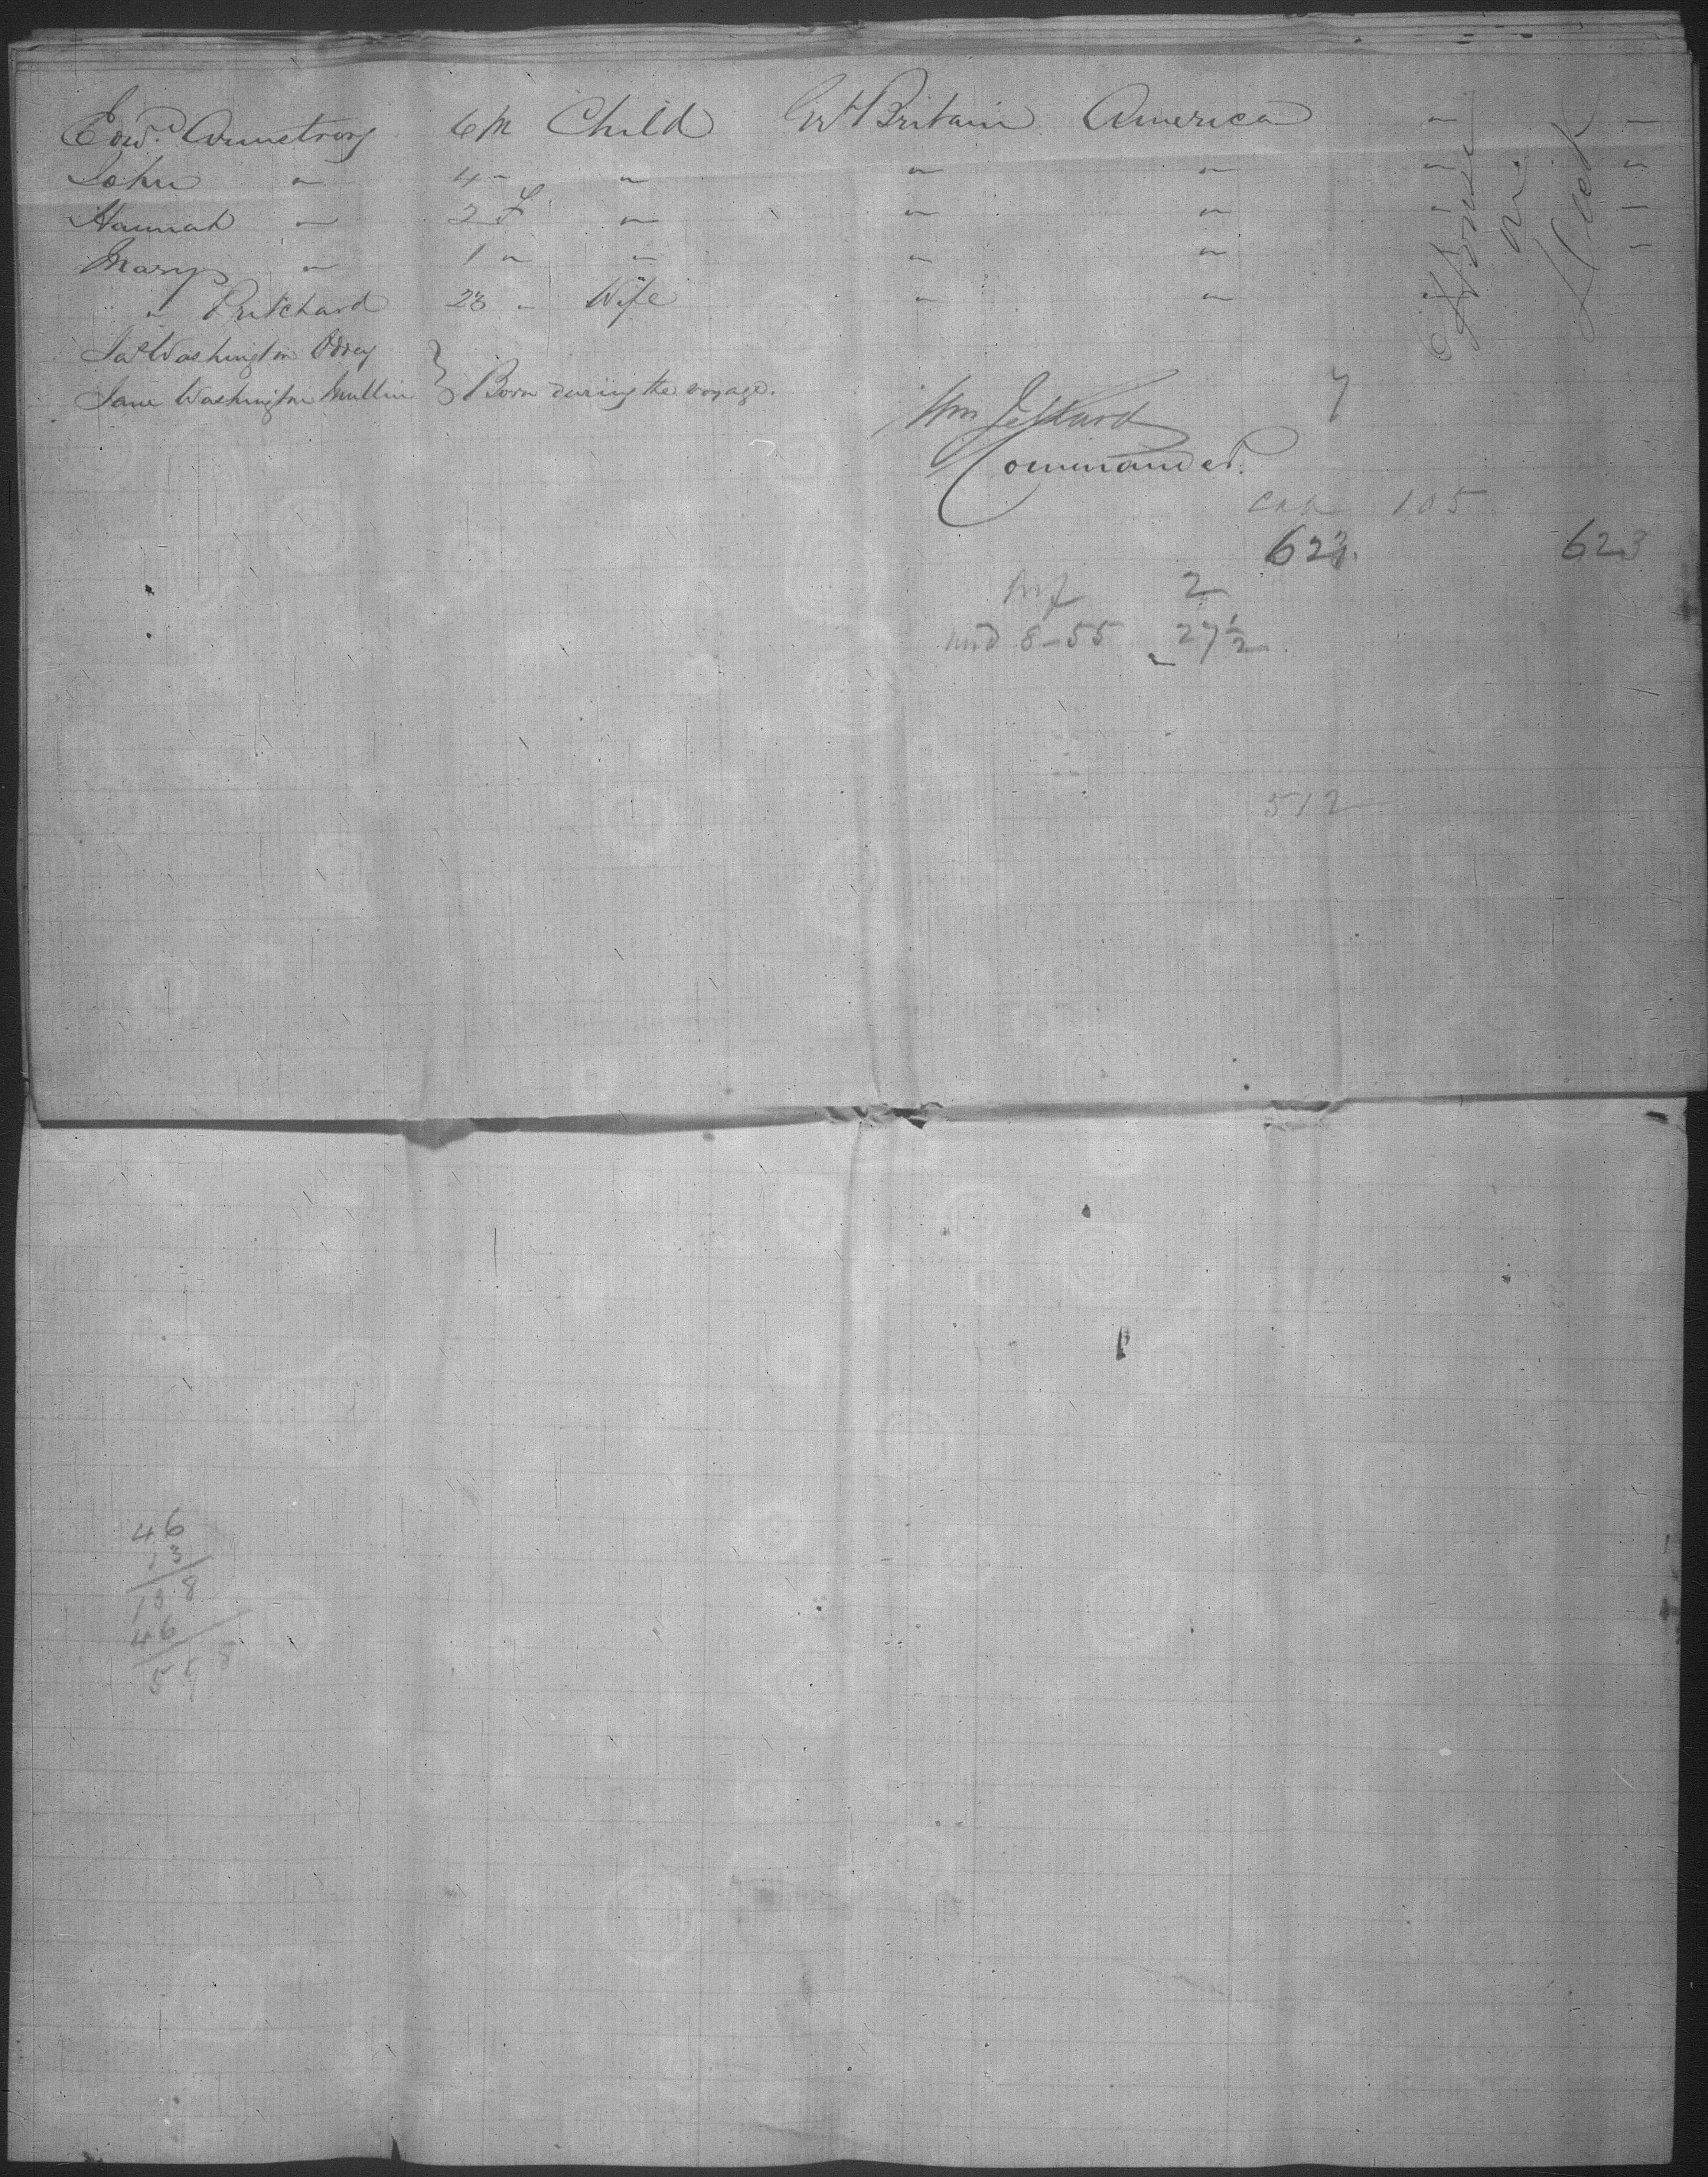 Edwd. Armstrong 6 M Child Gt Britain America " "
John " 4 " " " " " "
Hannah " 2 F " " " " "
Mary " 1 " " " " "
" Pritchard 23 " Wife " " "
Jas Washington
Jane Washington Mullin } Born during the voyage.
7
Wm
Commander.
105
623. 623
Inf 2
und 8-55 27 1/2
512
46
13
138
46
598